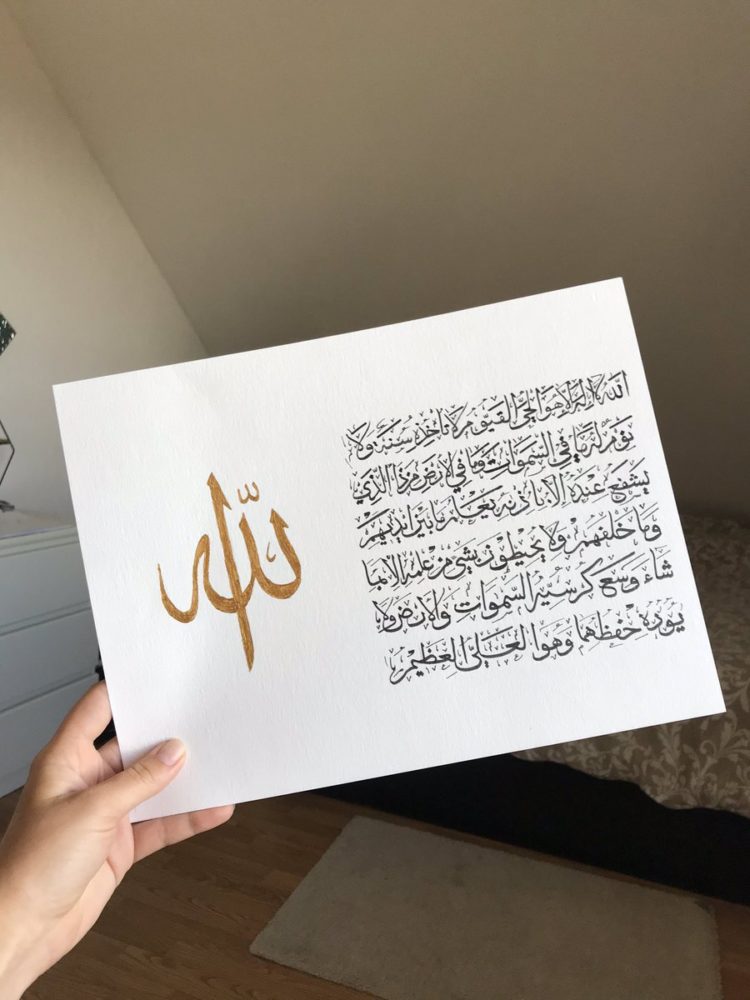 الله لا اله الا هو الحي القيوم لا تأخذه سنة ولا
نوم له ما في السموات وما في الارض من ذا الذي
يشفع عنده الا باذنه يعلم ما بين ايديهم
وما خلفهم ولا يحيطون بشيء من علمه الا بما
شاء وسع كرسيه السموات والارض ولا
يؤده حفظهما وهو العلي العظيم
الله